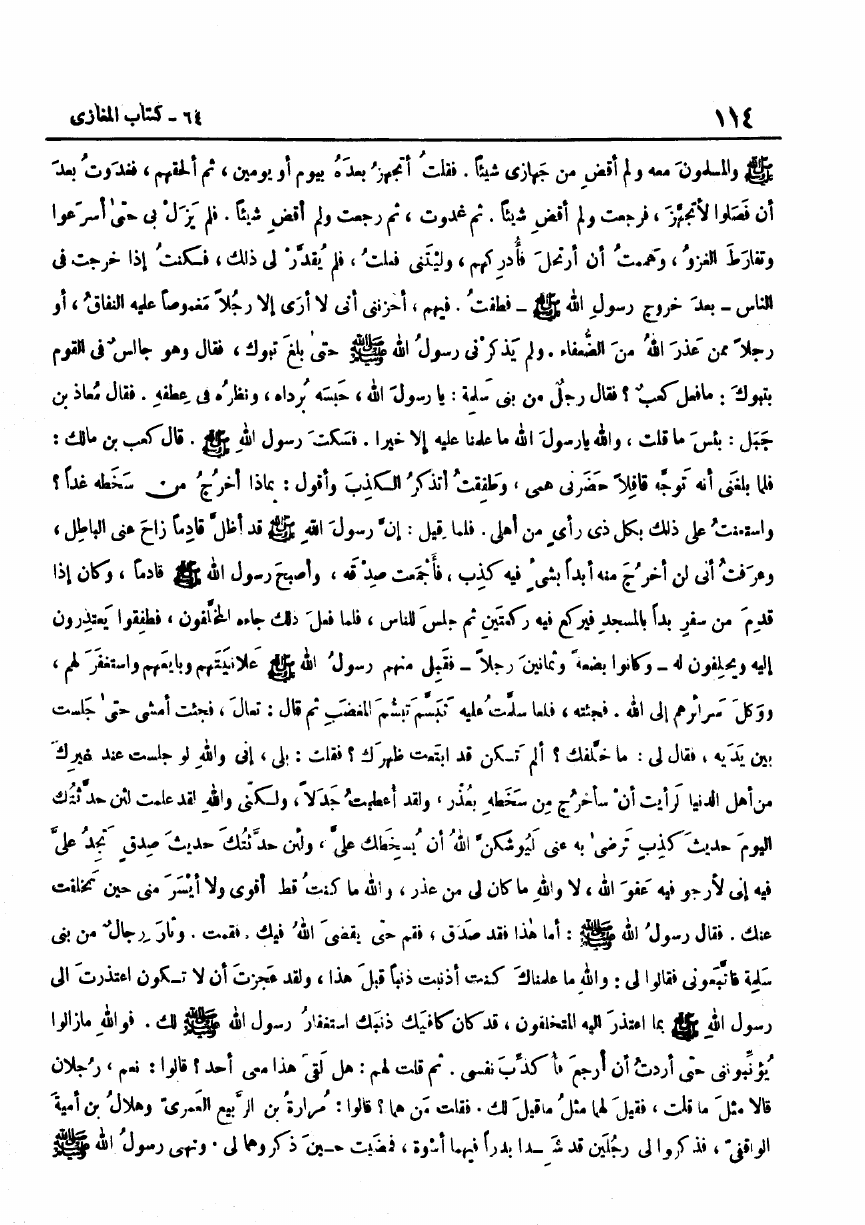 ١١٤ ٦٤ - كتاب المغازى
ﷺ والمسلمونَ معه ولم أقضِ من جَهازى شيئاً . فقلتُ أتجهزُ بعدَهُ بيوم أو يومين ، ثم ألحقهم ، فغدَوتُ بعدَ
أن فَصَلوا لأتجهَّزَ ، فرجعت ولم أقضِ شيئاً . ثم غدوت ، ثم رجعت ولم أقضِ شيئاً . فلم يَزَلْ بى حتىٰ أسرَعوا
وتفارَطَ الغزوُ ، وهَممتُ أن أرتحلَ فأُدرِكَهم ، وليْتنى فعلتُ ، فلم يُقدَّرْ لى ذلك ، فكنتُ إذا خرجت فى
الناس - بعدَ خروجِ رسولِ الله ﷺ - فطفتُ . فيهم ، أحزننى أنى لا أرَى إلا رجُلاً مَغموصاً عليه النفاقُ ، أو
رجلاً ممن عَذرَ اللهُ منَ الضُّعفاء . ولم يَذكرْنى رسولُ الله ﷺ حتىٰ بلغَ تبوك ، فقال وهو جالسٌ فى القوم
بتبوكَ : مافعل كعبٌ ؟ فقال رجلٌ من بنى سَلِمة : يا رسولَ الله ، حَبَسَه بُرداه ، ونظرُه فى عِطفهِ . فقال مُعاذ بن
جَبَل : بئسَ ما قلت ، والله يارسولَ الله ما علمنا عليه إلا خيرا . فسَكتَ رسول اللهِ ﷺ . قال كعب بن مالك :
فلما بلغَنى أنه توجَّه قافِلاً حَضَرنى همى ، وطَفِقتُ أتذكرُ الكذِبَ وأقول : بماذا أخرُجُ من سَخَطه غداً ؟
واستعنتُ على ذلك بكل ذى رأىٍ من أهلى . فلما قيل : إنَّ رسولَ اللهِ ﷺ قد أظلَّ قادِماً زاحَ عنى الباطِل ،
وعرَفتُ أنى لن أخرُجَ منه أبداً بشىءٍ فيه كذِب ، فأجْمَعت صِدْقَه ، وأصبحَ رسول الله ﷺ قادماً ، وكان إذا
قدِمَ من سفرٍ بدأ بالمسجدِ فيركع فيه ركعتَين ثم جلسَ للناس ، فلما فعلَ ذلك جاءه المخلَّفون ، فطفِقوا يَعتذِرون
إليه ويحلِفون له - وكانوا بِضعةً وثمانينَ رجلاً - فقَبِلَ منهم رسولُ الله ﷺ عَلانيَتَهم وبايَعَهم واستغفَرَ لهم ،
ووَكلَ سَرائرَهم إلى الله . فجئته ، فلما سلَّمتُ عليه تَبَسَّمَ تَبَسُّمَ المغضَبِ ثم قال : تعالَ ، فجئت أمشى حتىٰ جَلست
بين يَدَيه ، فقال لى : ما خلَّفكَ ؟ ألم تكن قد ابتَعت ظهرَك ؟ فقلت : بلى ، إنى واللهِ لو جلست عند غيرِكَ
من أهل الدنيا لَرأيت أنْ سأخرُج مِن سَخَطهِ بعُذْر ، ولقد أُعطيتُ جَدَلاً ، ولكنّى واللهِ لقد علمت لئن حدَّثتُك
اليومَ حديثَ كذِبٍ تَرضىٰ به عنى لَيُوشكنَّ اللهُ أن يُسخِطَك علىَّ ، ولئن حدَّثتُكَ حديثَ صِدقٍ تَجِدُ علىَّ
فيه إنى لأرجو فيه عَفوَ الله ، لا واللهِ ما كان لى من عذر ، والله ما كنتُ قط أقوى ولا أيْسَرَ منى حين تخلفت
عنك . فقال رسولُ الله ﷺ : أما هٰذا فقد صدَق ، فقم حتّى يقضىَ اللهُ فيك . فقمت . وثارَ رِجالٌ من بنى
سَلِمة فاتَّبعونى فقالوا لى : واللهِ ما علمناكَ كنتَ أذنبت ذنباً قبلَ هذا ، ولقد عَجَزتَ أن لا تكون اعتذرتَ الى
رسول اللهِ ﷺ بما اعتذرَ اليه المتخلفون ، قد كان كافيَك ذنبَك استغفارُ رسول الله ﷺ لك . فواللهِ مازالوا
يُؤنِّبوننى حتّى أردتُ أن أرجعَ فأكذِّبَ نفسى . ثم قلت لهم : هل لَقىَ هذا معى أحد ؟ قالوا : نعم ، رجُلان
قالا مثلَ ما قلت ، فقيلَ لهما مثلُ ماقيلَ لك . فقلت مَن هما ؟ قالوا : مُرارةُ بن الرَّبيع العَمرىّ وهلالُ بن أميةَ
الواقفىّ ، فذكروا لى رجُلَين قد شَهِدا بدراً فيهما أسْوة ، فمضَيت حينَ ذكروهما لى . ونهى رسولُ الله ﷺ